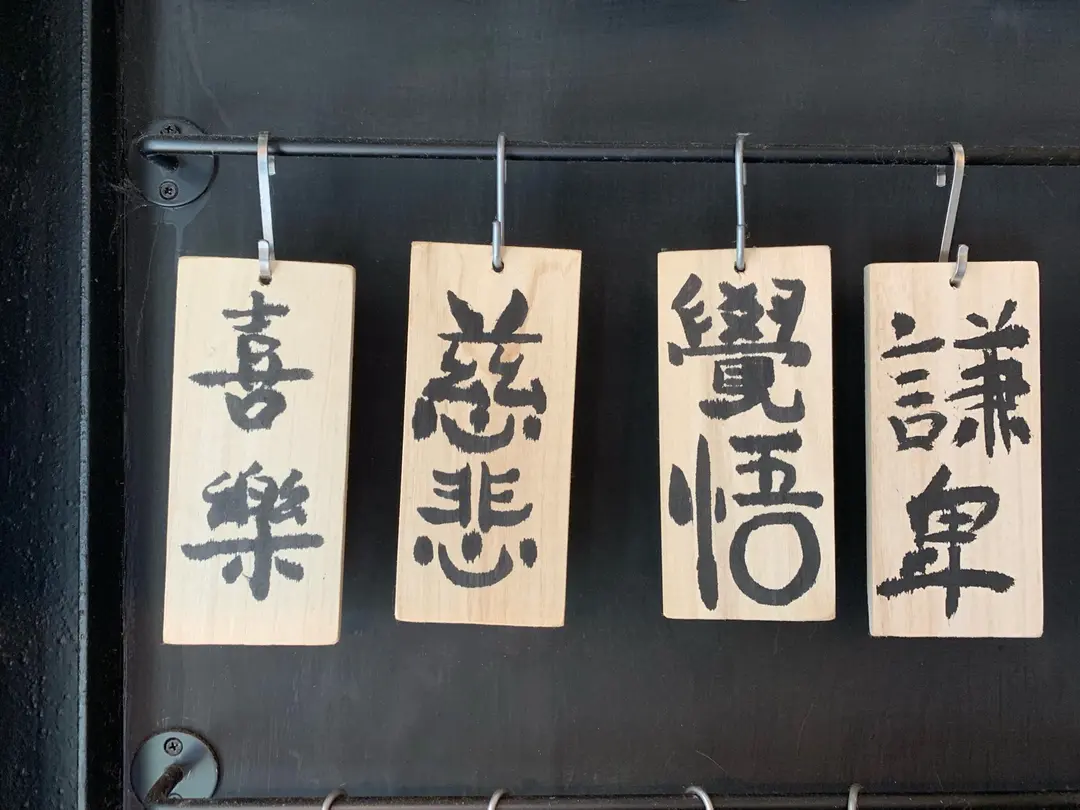 喜樂
慈悲
覺悟
謙卑